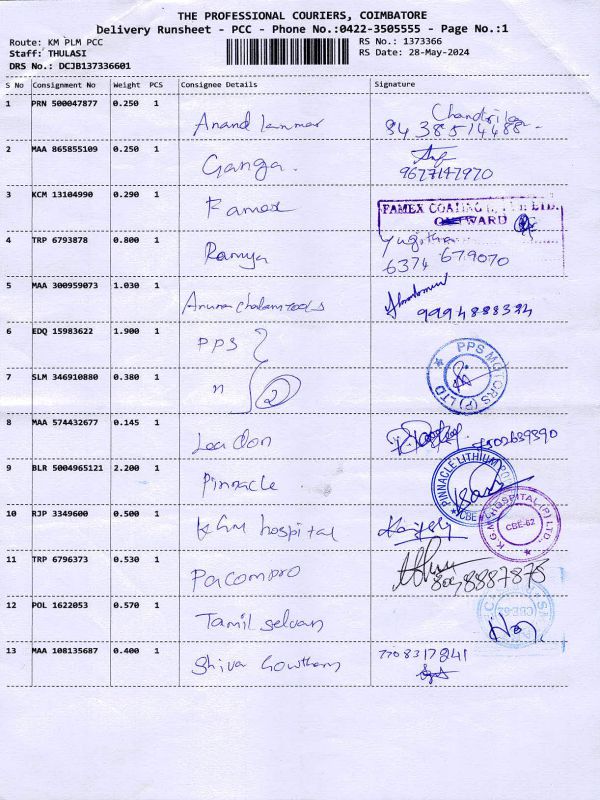 THE PROFESSIONAL COURIERS, COIMBATORE
Delivery Runsheet - PCC - Phone No.:0422-3505555 - Page No.:1
Route: KM PLM PCC RS No.: 1373366
Staff: THULASI RS Date: 28-May-2024
DRS No.: DCJB137336601
S No Consignment No Weight PCS Consignee Details Signature
1 PRN 500047877 0.250 1 Anand
2 MAA 865855109 0.250 1 Ganga. 9677147970
3 KCM 13104990 0.290 1 Famex FAMEX COATING LTD.
4 TRP 6793878 0.800 1 Ramya 6374 679070
5 MAA 300959073 1.030 1 Arunachalam Tools 9994888334
6 EDQ 15983622 1.900 1 PPS PPS MOTORS (P) LTD
7 SLM 346910880 0.380 1 2
8 MAA 574432677 0.145 1
9 BLR 5004965121 2.200 1 Pinnacle PINNACLE LITHIUM CBE
10 RJP 3349600 0.500 1 KGM hospital K.G.M. HOSPITAL (P) LTD. CBE-62
11 TRP 6796373 0.530 1 Pacompro
12 POL 1622053 0.570 1 Tamil Selvan
13 MAA 108135687 0.400 1 Shiva Gowtham 7708317841